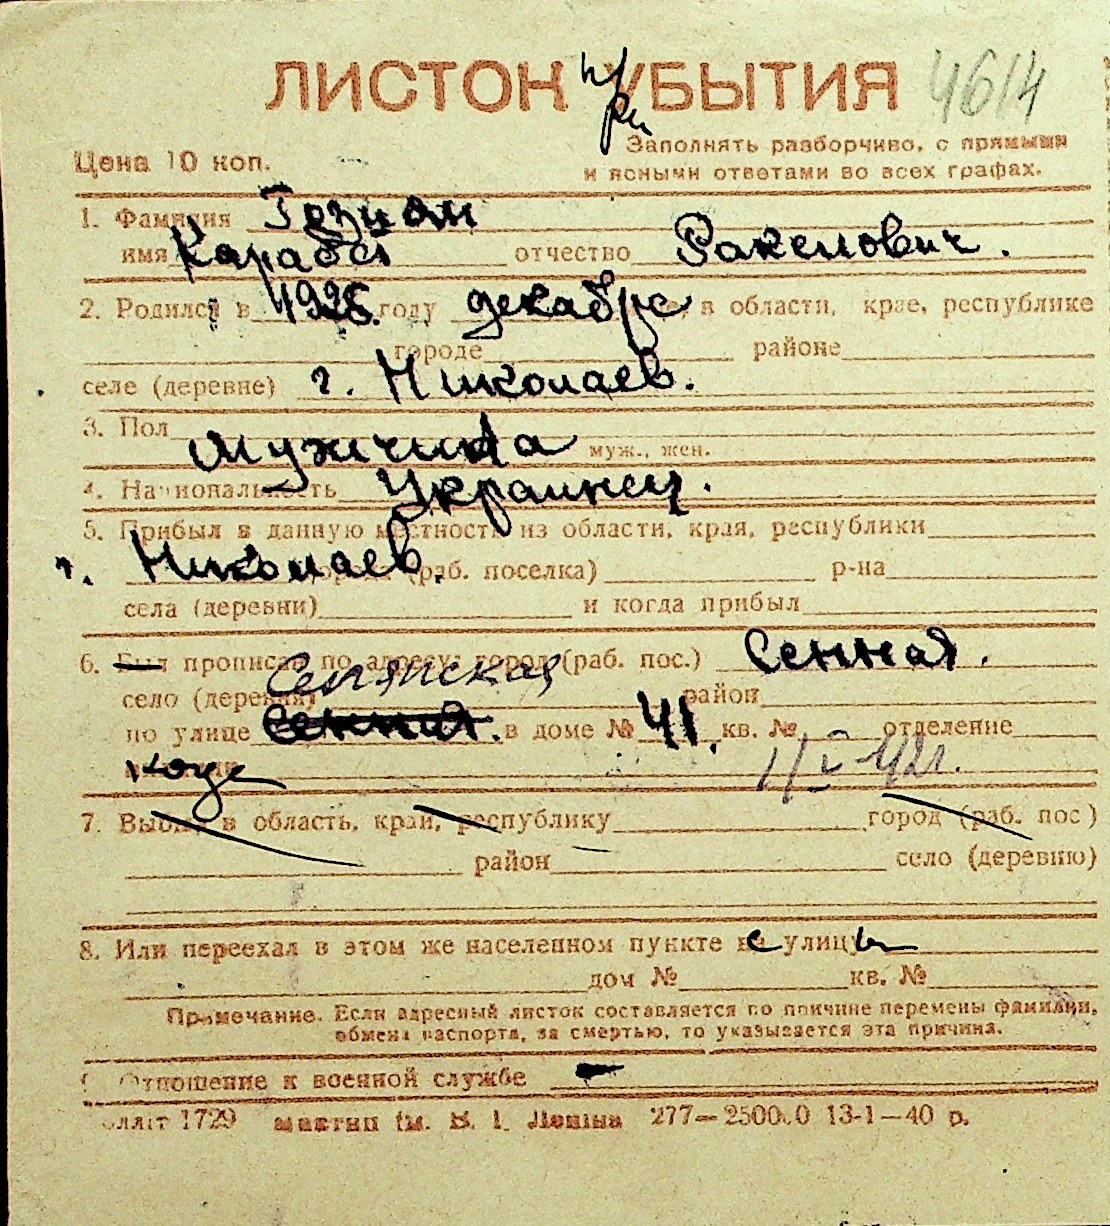 ЛИСТОК УБЫТИЯ 4614
Цена 10 коп.
Заполнять разборчиво, с прямыми
и ясными ответами во всех графах.
1. Фамилия
имя Карабет отчество
2. Родился в 1926. году декабре, в области, крае, республике
городе районе
селе (деревне) г. Николаев.
3. Пол Мужчина муж., жен.
4. Национальность Украинец.
5. Прибыл в данную местность из области, края, республики
г. Николаев. (раб. поселка) р-на
села (деревни) и когда прибыл
6. Был прописан по адресу: город (раб. пос.) Сенная.
село (деревня) район
по улице Сенная. в доме № 41. кв. № отделение
1/V-42г.
7. Выбыл в область, край, республику город (раб. пос.)
район село (деревню)
8. Или переехал в этом же населенном пункте с улицы
дом № кв. №
Примечание. Если адресный листок составляется по причине перемены фамилии,
обмена паспорта, за смертью, то указывается эта причина.
Отношение к военной службе
1729 Леніна 277—250000 13-1—40 р.